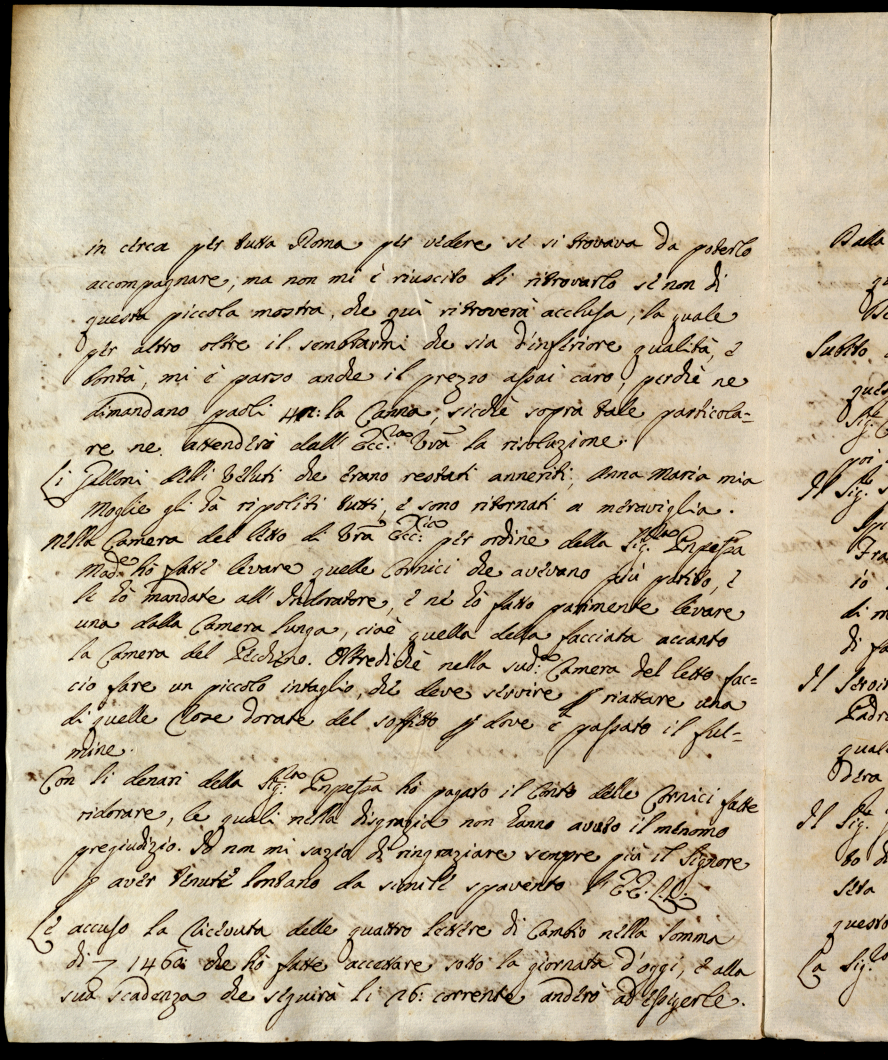 in circa per tutta Roma per vedere se si trovava da poterlo
accompagnare; ma non mi è riuscito di ritrovarlo se non di
questa piccola mostra, che quì ritroverà acclusa, la quale
per altro oltre il sembrarmi che sia d'inferiore qualità, e
bontà, mi è parso anche il prezzo assai caro, perchè ne
dimandano paoli la Canna; sicchè sopra tale particola=
re ne attenderò dall' Ecc.za Vra la risoluzione.
Li Galloni delli Veluti che erano restati anneriti, Anna Maria mia
Moglie gli hà ripoliti tutti, e sono ritornati a meraviglia.
Nella Camera del letto di Vra Ecc: per ordine della Sig.ra Pnpessa
Mad.e hò fatte levare quelle Cornici che avevano più patito, e
le hò mandate all' Indoratore, e ne hò fatto parimente levare
una dalla Camera lunga, cioè quella della facciata accanto
la Camera del Oltrediche nella sud.a Camera del letto fac=
cio fare un piccolo intaglio, che deve servire p riattare una
di quelle Rose dorate del soffitto p dove è passato il ful=
mine.
Con li denari della Sig.ra Pnpessa hò pagato il Conto delle Cornici fatte
ridorare, le quali nella disgrazia non hanno avuto il menomo
pregiudizio. Io non mi sazio di ringraziare sempre più il Signore
p aver tenute lontano da simile spavento l' EE. LL.
Le accuso la ricevuta delle quattro lettere di Cambio nella somma
di che hò fatte accettare sotto la giornata d'oggi, e alla
sua scadenza che seguirà li 26: corrente anderò ad esigerle.
Dalla
Subito
ques
Sig.
poi
Il Sig.
Fra
io
di m
di fa
Il Servit
Padro
qual
Il Sig.
to d
seta
questo
La Sig.